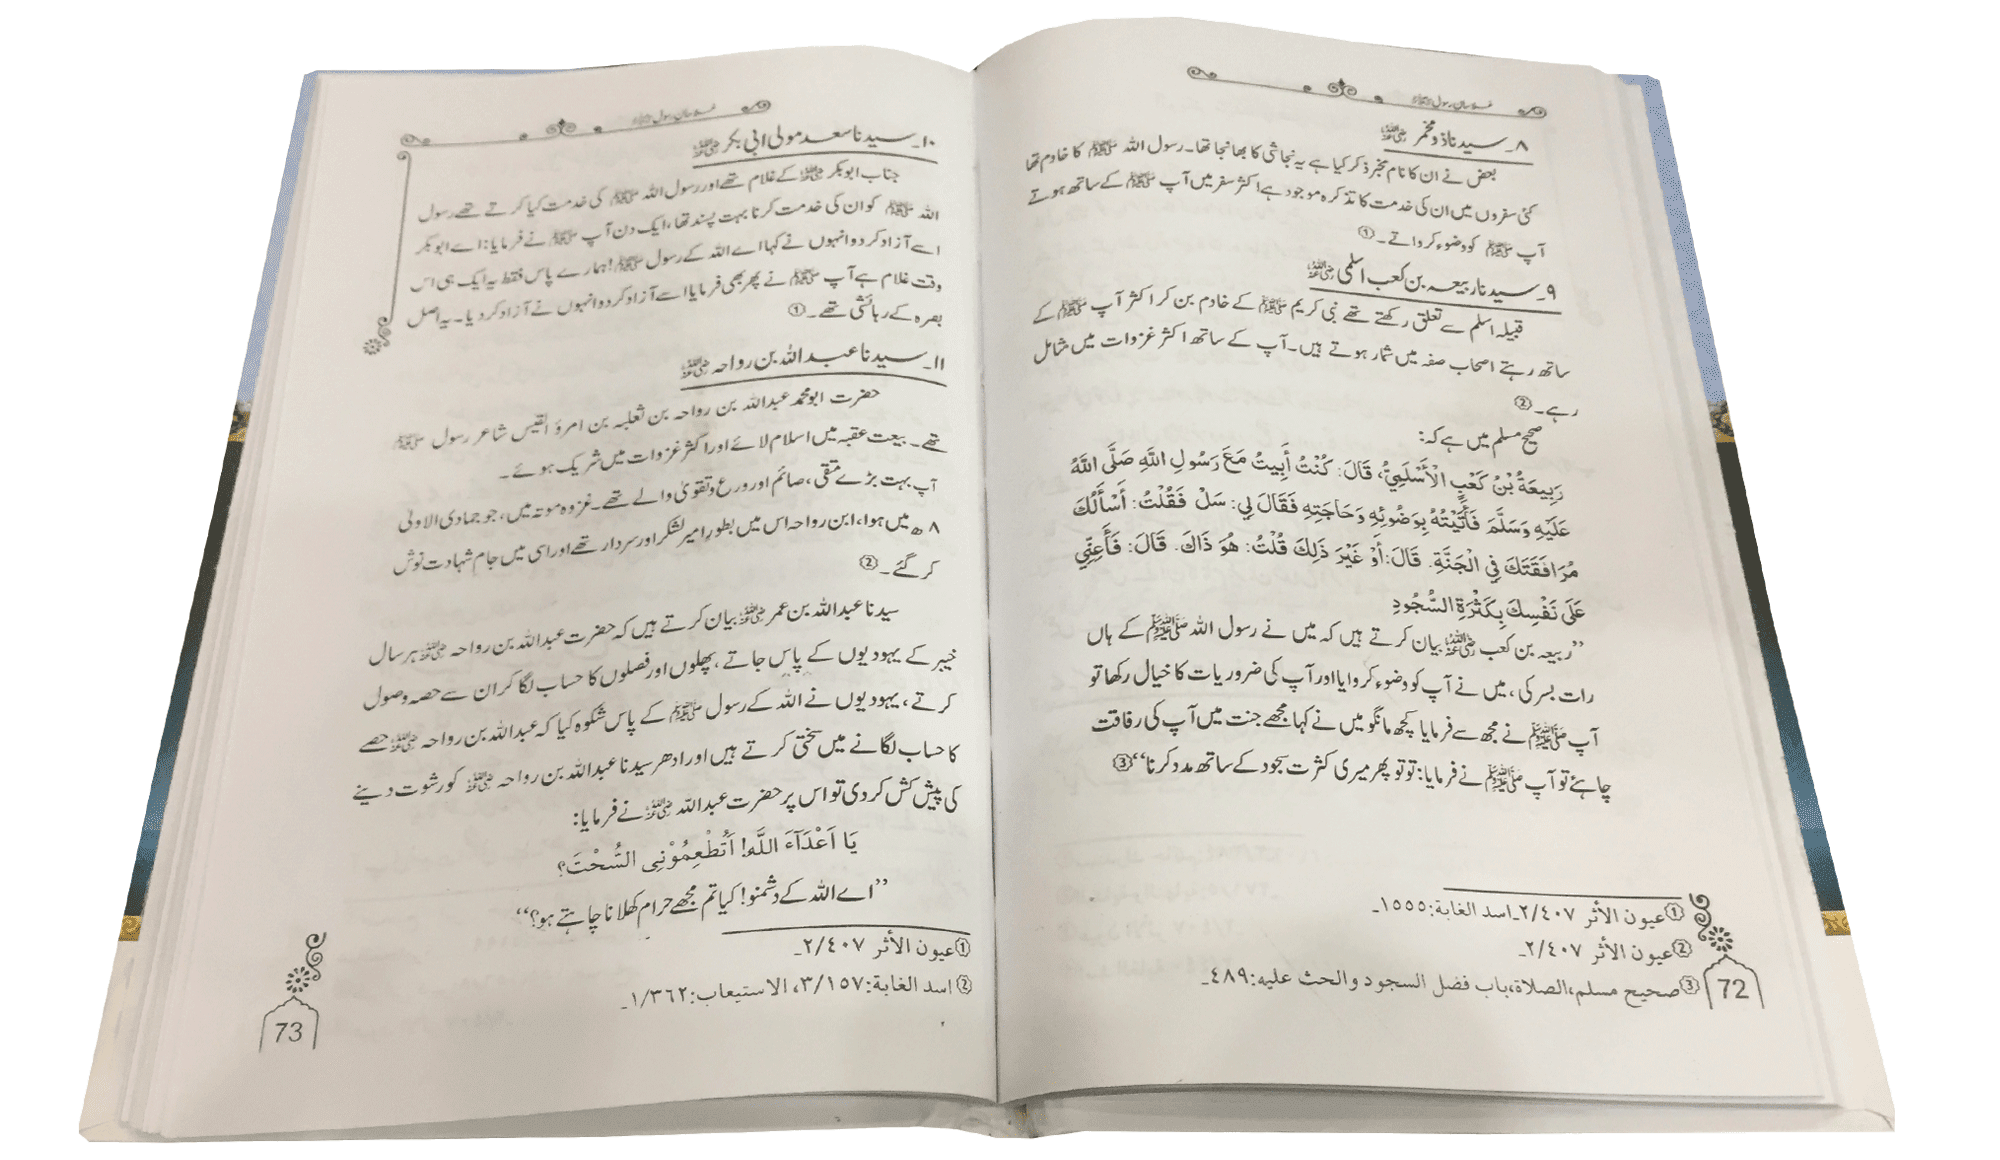 رسول ﷺ
٨۔ سیدنا ذومخمر ﷜
بعض نے ان کا نام مخبر ذکر کیا ہے یہ نجاشی کا بھانجا تھا۔ رسول اللہ ﷺ کا خادم تھا
کئی سفروں میں ان کی خدمت کا تذکرہ موجود ہے اکثر سفر میں آپ ﷺ کے ساتھ ہوتے
آپ ﷺ کو وضوء کرواتے۔ ①
٩۔ سیدنا ربیعہ بن کعب اسلمی ﷜
قبیلہ اسلم سے تعلق رکھتے تھے نبی کریم ﷺ کے خادم بن کر اکثر آپ ﷺ کے
ساتھ رہتے اصحاب صفہ میں شمار ہوتے ہیں۔ آپ کے ساتھ اکثر غزوات میں شامل
رہے۔ ②
صحیح مسلم میں ہے کہ:
رَبِيعَةُ بْنُ كَعْبٍ الْأَسْلَمِيُّ، قَالَ: كُنْتُ أَبِيتُ مَعَ رَسُولِ اللَّهِ صَلَّى اللَّهُ
عَلَيْهِ وَسَلَّمَ فَأَتَيْتُهُ بِوَضُوئِهِ وَحَاجَتِهِ فَقَالَ لِي: سَلْ فَقُلْتُ: أَسْأَلُكَ
مُرَافَقَتَكَ فِي الْجَنَّةِ. قَالَ: أَوْ غَيْرَ ذَلِكَ قُلْتُ: هُوَ ذَاكَ. قَالَ: فَأَعِنِّي
عَلَى نَفْسِكَ بِكَثْرَةِ السُّجُودِ
’’ربیعہ بن کعب ﷜ بیان کرتے ہیں کہ میں نے رسول اللہ ﷺ کے ہاں
رات بسر کی، میں نے آپ کو وضوء کروایا اور آپ کی ضروریات کا خیال رکھا تو
آپ ﷺ نے مجھ سے فرمایا کچھ مانگو میں نے کہا مجھے جنت میں آپ کی رفاقت
چاہئے تو آپ ﷺ نے فرمایا: تو تو پھر میری کثرت سجود کے ساتھ مدد کرنا‘‘ ③
① عيون الأثر ٢/٤٠٧۔ اسد الغابة: ١٥٥٥۔
② عيون الأثر ٢/٤٠٧۔
③ صحيح مسلم، الصلاة، باب فضل السجود والحث عليه: ٤٨٩۔
72
رسول ﷺ
١٠۔ سیدنا سعد مولی ابی بکر ﷜
جناب ابوبکر ﷜ کے غلام تھے اور رسول اللہ ﷺ کی خدمت کیا کرتے تھے رسول
اللہ ﷺ کو ان کی خدمت کرنا بہت پسند تھا، ایک دن آپ ﷺ نے فرمایا: اے ابوبکر
اسے آزاد کر دو انہوں نے کہا اے اللہ کے رسول ﷺ! ہمارے پاس فقط یہ ایک ہی اس
وقت غلام ہے آپ ﷺ نے پھر بھی فرمایا اسے آزاد کر دو انہوں نے آزاد کر دیا۔ یہ اصل
بصرہ کے رہائشی تھے۔ ①
١١۔ سیدنا عبداللہ بن رواحہ ﷜
حضرت ابومحمد عبداللہ بن رواحہ بن ثعلبہ بن امرؤ القیس شاعر رسول ﷺ
تھے۔ بیعت عقبہ میں اسلام لائے اور اکثر غزوات میں شریک ہوئے۔
آپ بہت بڑے متقی، صائم اور ورع وتقویٰ والے تھے۔ غزوہ موتہ میں، جو جمادی الاولیٰ
٨ ھ میں ہوا، ابن رواحہ اس میں بطور امیر لشکر اور سردار تھے اور اسی میں جام شہادت نوش
کر گئے۔ ②
سیدنا عبداللہ بن عمر ﷜ بیان کرتے ہیں کہ حضرت عبداللہ بن رواحہ ﷜ ہر سال
خیبر کے یہودیوں کے پاس جاتے، پھلوں اور فصلوں کا حساب لگا کر ان سے حصہ وصول
کرتے، یہودیوں نے اللہ کے رسول ﷺ کے پاس شکوہ کیا کہ عبداللہ بن رواحہ ﷜ حصے
کا حساب لگانے میں سختی کرتے ہیں اور ادھر سیدنا عبداللہ بن رواحہ ﷜ کو رشوت دینے
کی پیش کش کر دی تو اس پر حضرت عبداللہ ﷜ نے فرمایا:
يَا اَعْدَآءَ اللَّهِ! اَتُطْعِمُوْنِي السُّحْتَ؟
’’اے اللہ کے دشمنو! کیا تم مجھے حرام کھلانا چاہتے ہو؟‘‘
① عيون الأثر ٢/٤٠٧۔
② اسد الغابة: ٣/١٥٧، الاستيعاب: ١/٣٦٢۔
73